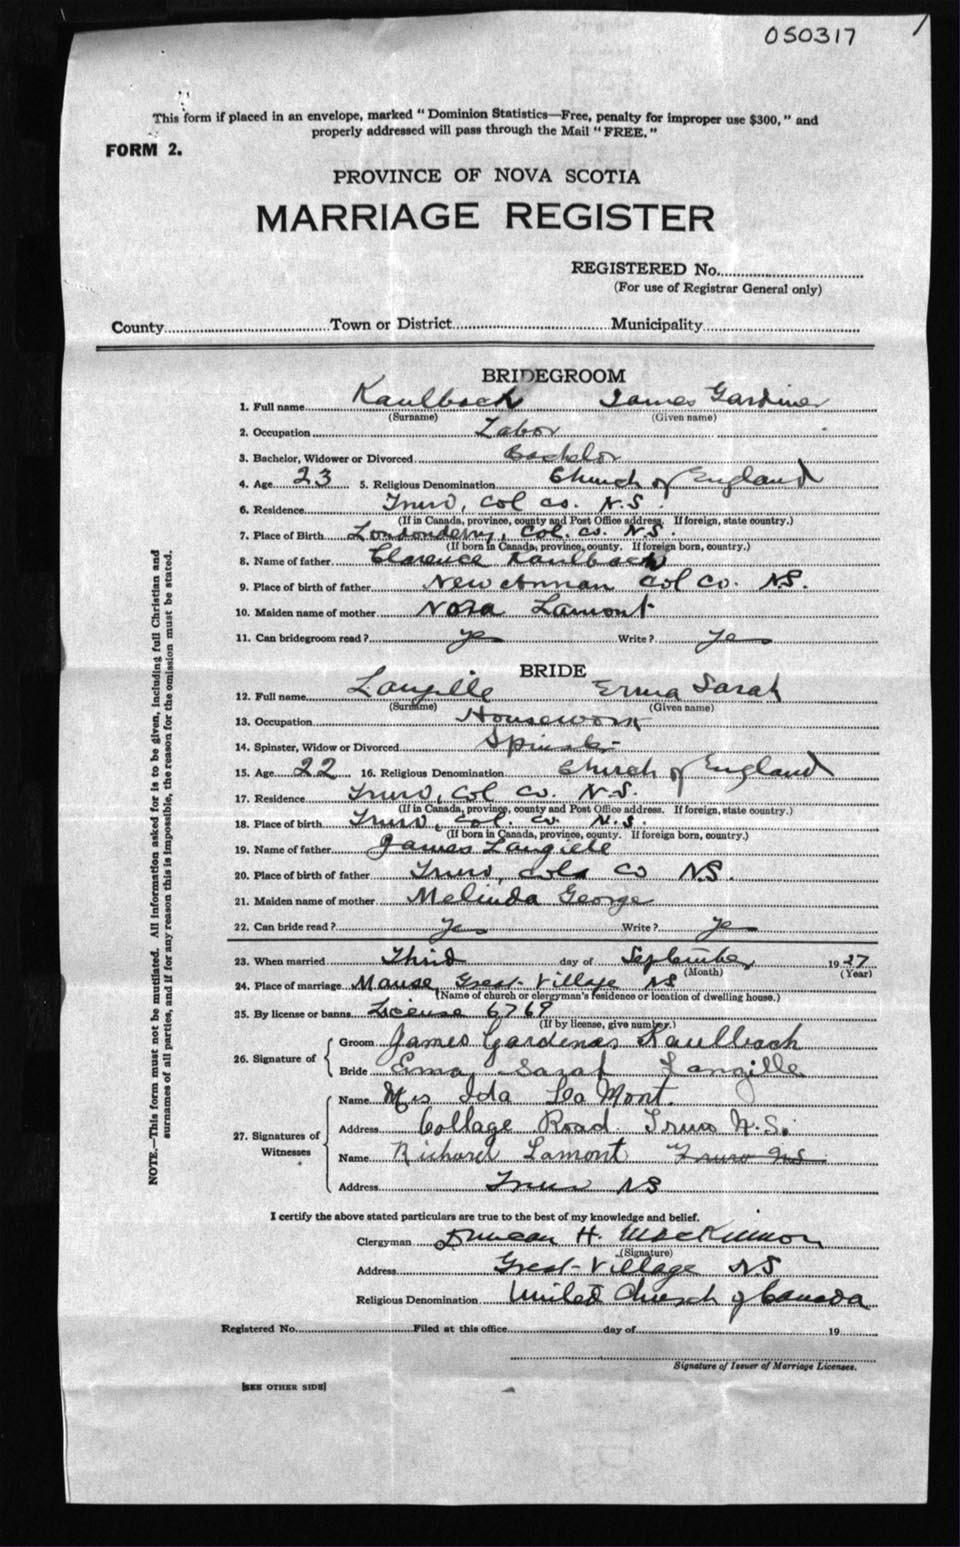 050317
This form if placed in an envelope, marked "Dominion Statistics—Free, penalty for improper use $300," and
properly addressed will pass through the Mail "FREE."
FORM 2.
PROVINCE OF NOVA SCOTIA
MARRIAGE REGISTER
REGISTERED No.
(For use of Registrar General only)
County Town or District Municipality
BRIDEGROOM
1. Full name Kaulback James Gardiner
(Surname) (Given name)
2. Occupation Labor
3. Bachelor, Widower or Divorced Bachelor
4. Age 23 5. Religious Denomination Church of England
6. Residence Truro, Col co. N.S.
(If in Canada, province, county and Post Office address. If foreign, state country.)
7. Place of Birth Londonderry, Col. co. N.S.
(If born in Canada, province, county. If foreign born, country.)
8. Name of father Clarence Kaulback
9. Place of birth of father New Annan Col co. NS.
10. Maiden name of mother Nora Lamont
11. Can bridegroom read? yes Write? yes
BRIDE
12. Full name Langille Erma Sarah
(Surname) (Given name)
13. Occupation Housework
14. Spinster, Widow or Divorced Spinster
15. Age 22 16. Religious Denomination Church of England
17. Residence Truro, Col co. N.S.
(If in Canada, province, county and Post Office address. If foreign, state country.)
18. Place of birth Truro, Col. co. N.S.
(If born in Canada, province, county. If foreign born, country.)
19. Name of father James Langille
20. Place of birth of father Truro, Co NS.
21. Maiden name of mother Melinda George
22. Can bride read? yes Write? yes
23. When married Third day of September 1927
(Month) (Year)
24. Place of marriage Manse, Great Village NS
(Name of church or clergyman's residence or location of dwelling house.)
25. By license or banns License 6769
(If by license, give number.)
26. Signature of
Groom James Kaulback
Bride Erma Sarah Langille
27. Signatures of Witnesses
Name Mrs Ida La Mont.
Address Collage Road Truro N.S.
Name Richard Lamont Truro NS
Address Truro NS
I certify the above stated particulars are true to the best of my knowledge and belief.
Clergyman Duncan H. MacKinnon
(Signature)
Address Great Village NS
Religious Denomination United Church of Canada
Registered No. Filed at this office day of 19
Signature of Issuer of Marriage Licenses.
[SEE OTHER SIDE]
NOTE.—This form must not be mutilated. All information asked for is to be given, including full Christian and
surnames of all parties, and if for any reason this is impossible, the reason for the omission must be stated.